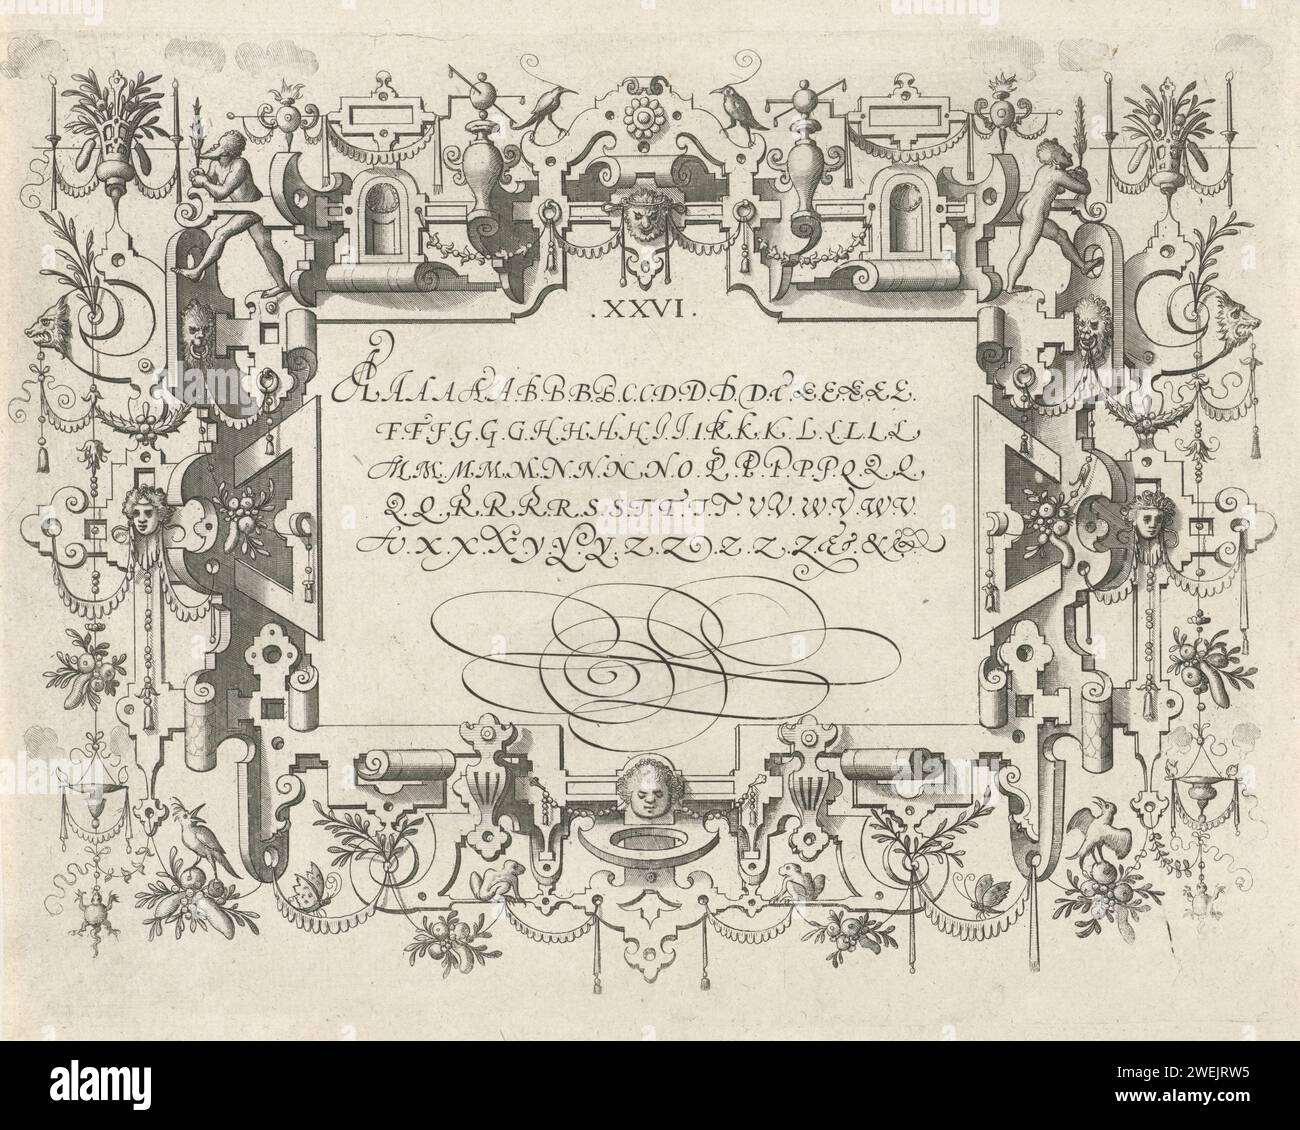 .XXVI.
A.A.A.A.A.A.B.B.B.B.C.C.D.D.D.D.D.E.E.E.E.E.E.
F.F.F.G.G.G.H.H.H.H.I.I.I.K.K.K.L.L.L.L.L
M.M.M.M.M.N.N.N.N.O.P.P.P.P.P.Q.Q.Q
Q.Q.R.R.R.R.R.S.S.T.T.T.T.T.V.V.W.V.W.V.
V.X.X.X.X.Y.Y.Y.Z.Z.Z.Z.Z.Z.&.&.&
alamy
Image ID: 2WEJRW5
www.alamy.com